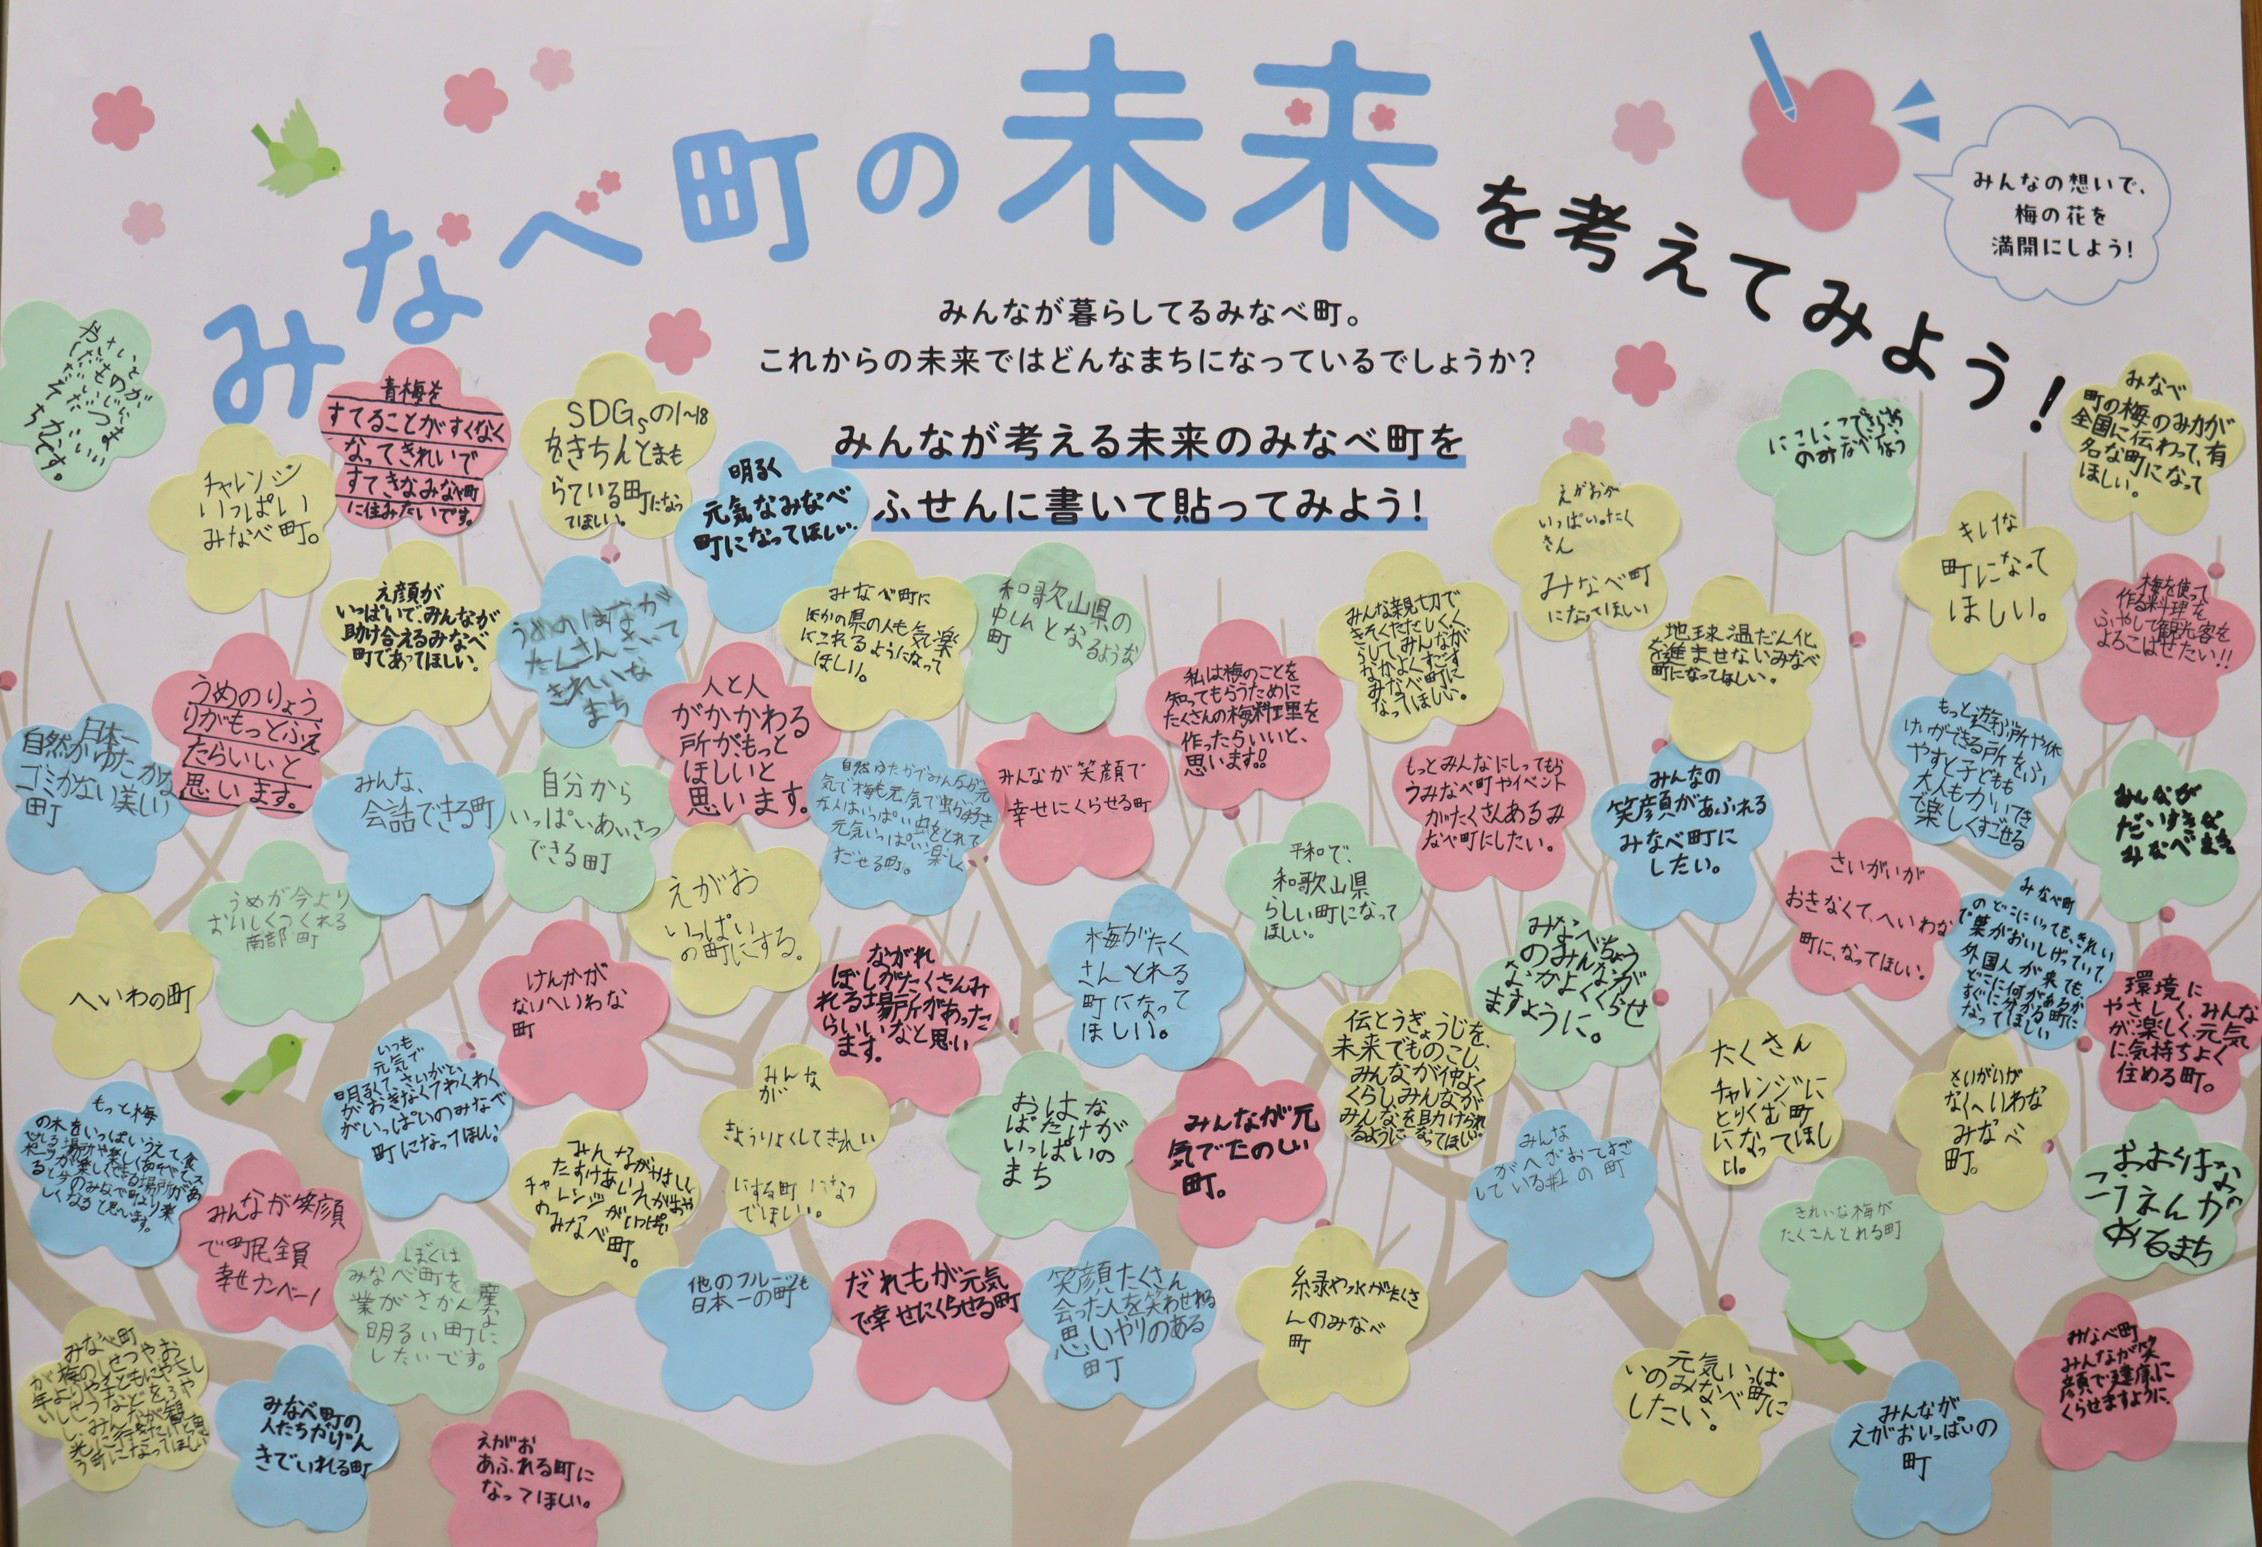 みなべ町の未来を考えてみよう!
みんなの想いで、
梅の花を
満開にしよう!
みんなが暮らしてるみなべ町。
これからの未来ではどんなまちになっているでしょうか?
みんなが考える未来のみなべ町を
ふせんに書いて貼ってみよう!
やさいと
くだものが
そだつ
まちです。
チャレンジ
いっぱい
みなべ町。
青梅を
すてることがすくなく
なってきれいで
すてきなみなべ町
に住みたいです。
SDGsの1~18
をきちんとまも
らている町になっ
てほしい。
明るく
元気なみなべ
町になってほしい。
えがおが
いっぱい。たく
さん
みなべ町
になってほしい
のみなべ町
みなべ
町の梅のみ力が
全国に伝わって、有
名な町になって
ほしい。
キレイな
町になって
ほしい。
え顔が
いっぱいで、みんなが
助け合えるみなべ
町であってほしい。
うめのはなが
たくさんさいて
きれいな
まち
みなべ町に
ほかの県の人も気楽
にこれるようになって
ほしい。
和歌山県の
中しんとなるような
町
みんな親切で
きそくただしくく
らして、みんなが
なかよくすごす
みなべ町に
なってほしい。
地球温だん化
を進ませないみなべ
町になってほしい。
梅を使って
作る料理を
ふやして観光客を
よろこばせたい!!
うめのりょう
りがもっとふえ
たらいいと
思います。
人と人
がかかわる
所がもっと
ほしいと
思います。
私は梅のことを
知ってもらうために
たくさんの梅料理を
作ったらいいと、
思います!!
日本一
自然がゆたかな
ゴミがない美しい
町
みんな、
会話できる町
自分から
いっぱいあいさつ
できる町
自然ゆたかでみんなが元
気で梅も元気で虫好き
な人はいっぱい虫をとれて
元気いっぱい楽しく
すごせる町。
みんなが笑顔で
幸せにくらせる町
もっとみんなにしってもら
うみなべ町やイベント
がたくさんあるみ
なべ町にしたい。
みんなの
笑顔があふれる
みなべ町に
したい。
もっと遊ぶ所や休
けいができる所をふ
やすと子ども
大人もかいてき
で楽しくすごせる
みんなが
だいすきな
みなべまち。
うめが今より
おいしくつくれる
南部町
えがお
いっぱい
の町にする。
平和で、
和歌山県
らしい町になって
ほしい。
さいがいが
おきなくて、へいわな
町に、なってほしい。
みなべ町
のどこにいっても、きれい
で葉がおいしげっていて、
外国人が来ても
どこに何があるか
すぐに分かる町に
なってほしい
へいわの町
けんかが
ないへいわな
町
ながれ
ぼしがたくさんみ
れる場所があった
らいいなと思い
ます。
梅がたく
さんとれる
町になって
ほしい。
みなべちょう
のみんなが
なかよくくらせ
ますように。
環境に
やさしく、みんな
が楽しく、元気
に気持ちよく
住める町。
いつも
元気で
明るくて、さいがい
がおきなくてわくわく
がいっぱいのみなべ
町になってほしい。
みんな
が、
きょうりょくしてきれい
にする町になっ
てほしい。
伝とうぎょうじを、
未来でものこし、
みんなが仲よく
くらし、みんなが
みんなを助けられ
るようになってほしい。
たくさん
チャレンジに
とりくむ町
になってほし
い。
さいがいが
なくへいわな
みなべ
町。
もっと梅
の木をいっぱいうえて、食
おはな
ばたけが
いっぱいの
まち
みんなが元
気でたのしい
町。
みんな
おおりはな
こうえんが
あるまち
みんなが笑顔
で町民全員
幸せナンバー1
みんながやさしく、
たすけあい
のみなべ町。
きれいな梅が
たくさんとれる町
ぼくは
みなべ町を産
業がさかんな
明るい町に
したいです。
他のフルーツも
日本一の町
だれもが元気
で幸せにくらせる町
笑顔たくさん
会った人を笑わせれる
思いやりのある
町
緑や水がたくさ
んのみなべ
町
みなべ町
みんなが笑
顔で健康に
くらせますように
みなべ町
みなべ町の
人たちがげん
きでいれる町
えがお
あふれる町に
なってほしい。
元気いっぱ
いのみなべ町に
したい。
みんなが
えがおいっぱいの
町